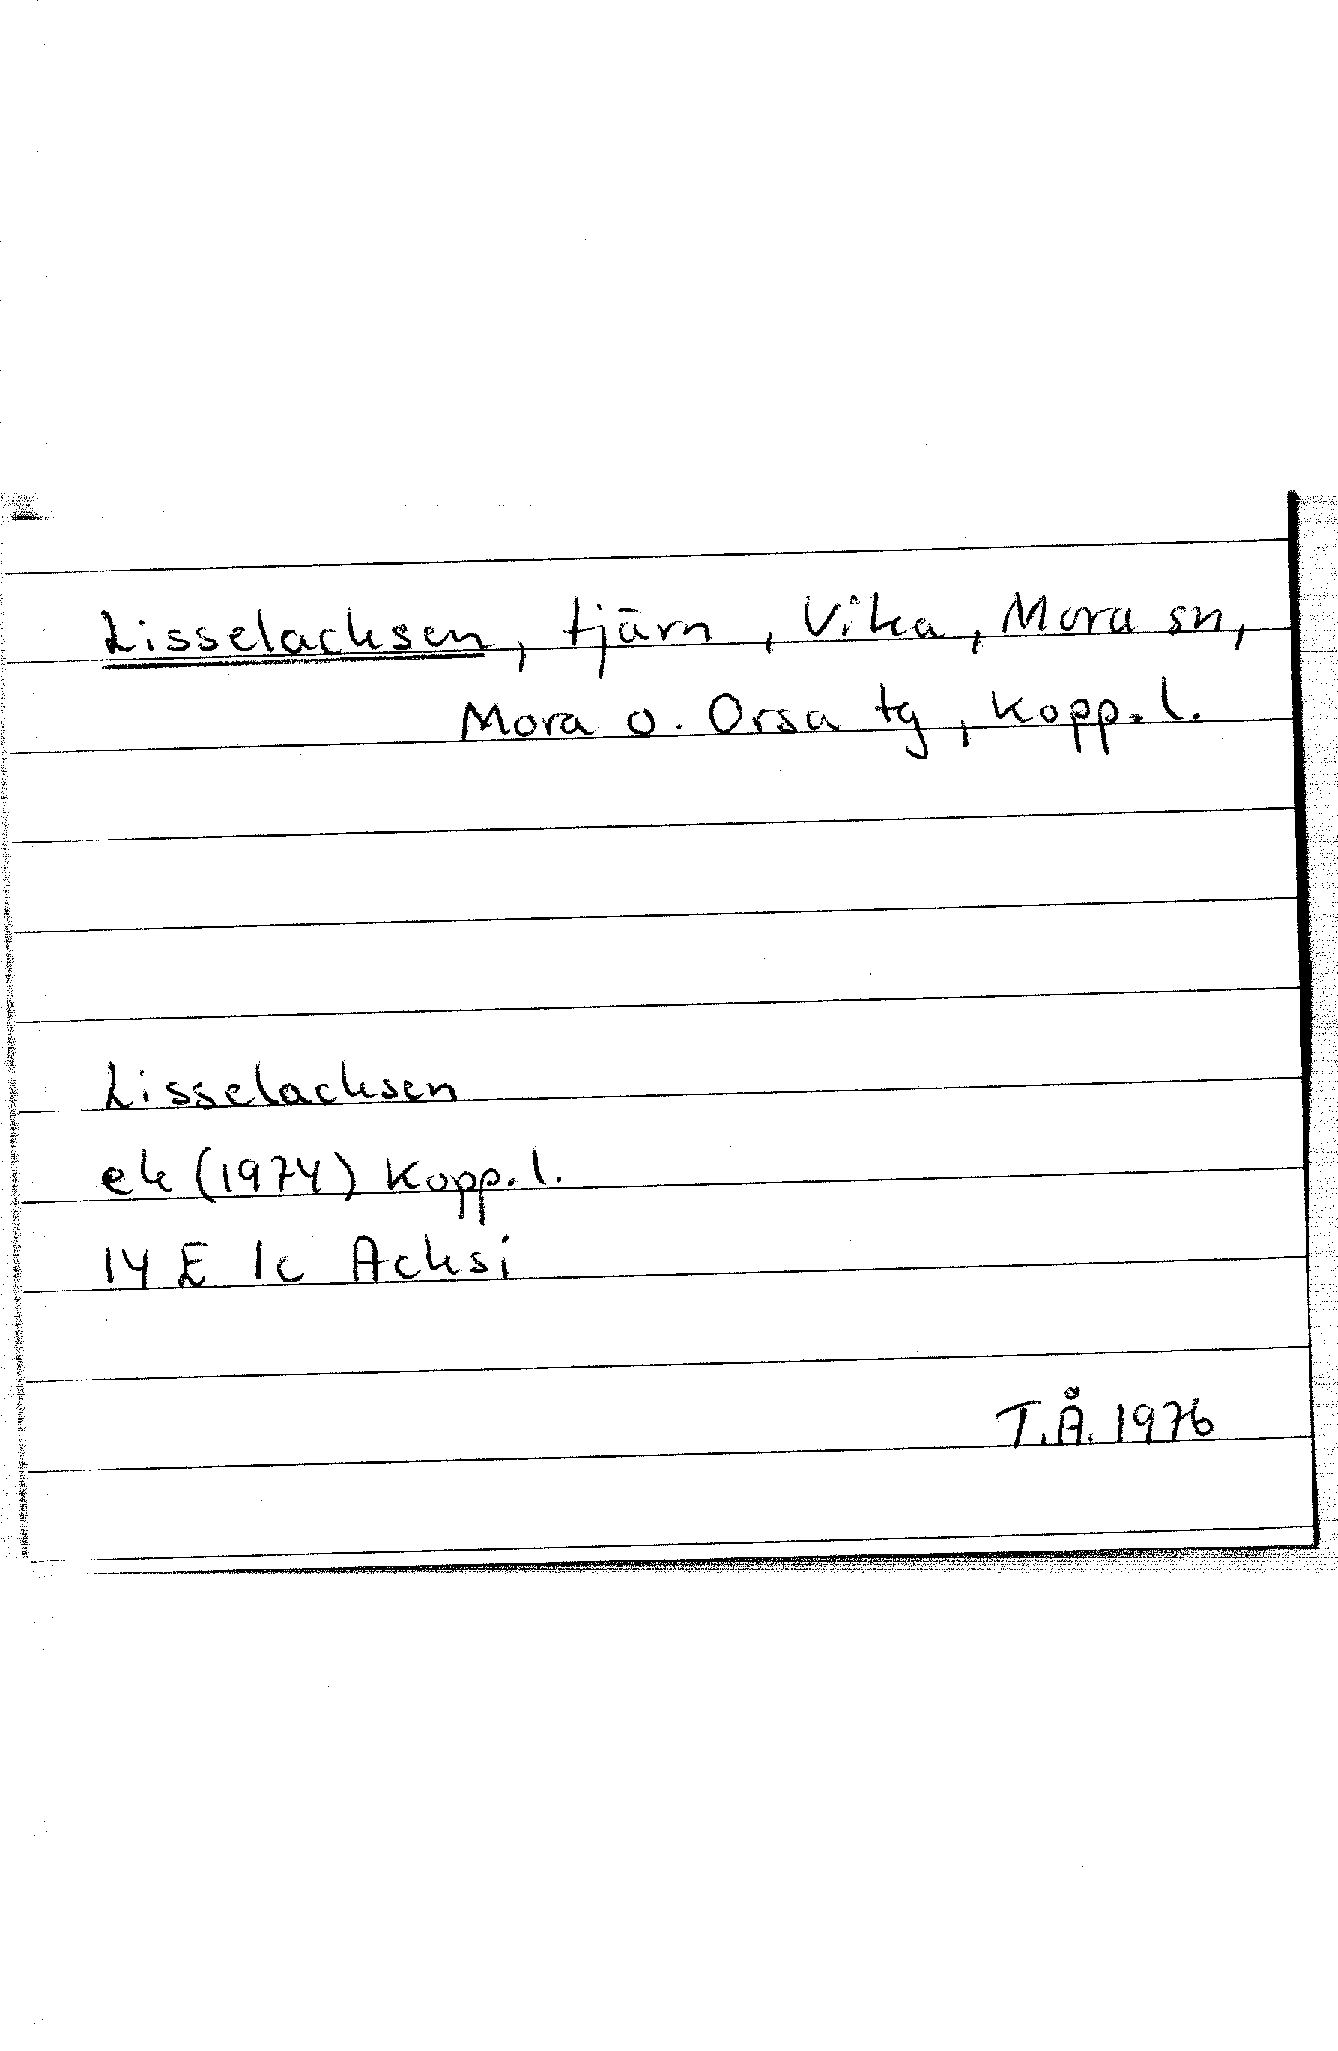 Lisselacksen, tjärn, Vika, Mora sn,
Mora o. Orsa tg, Kopp. l.
Lisselacksen
ek (1974) Kopp. l.
14 E 1c Acksi
T.Å. 1976